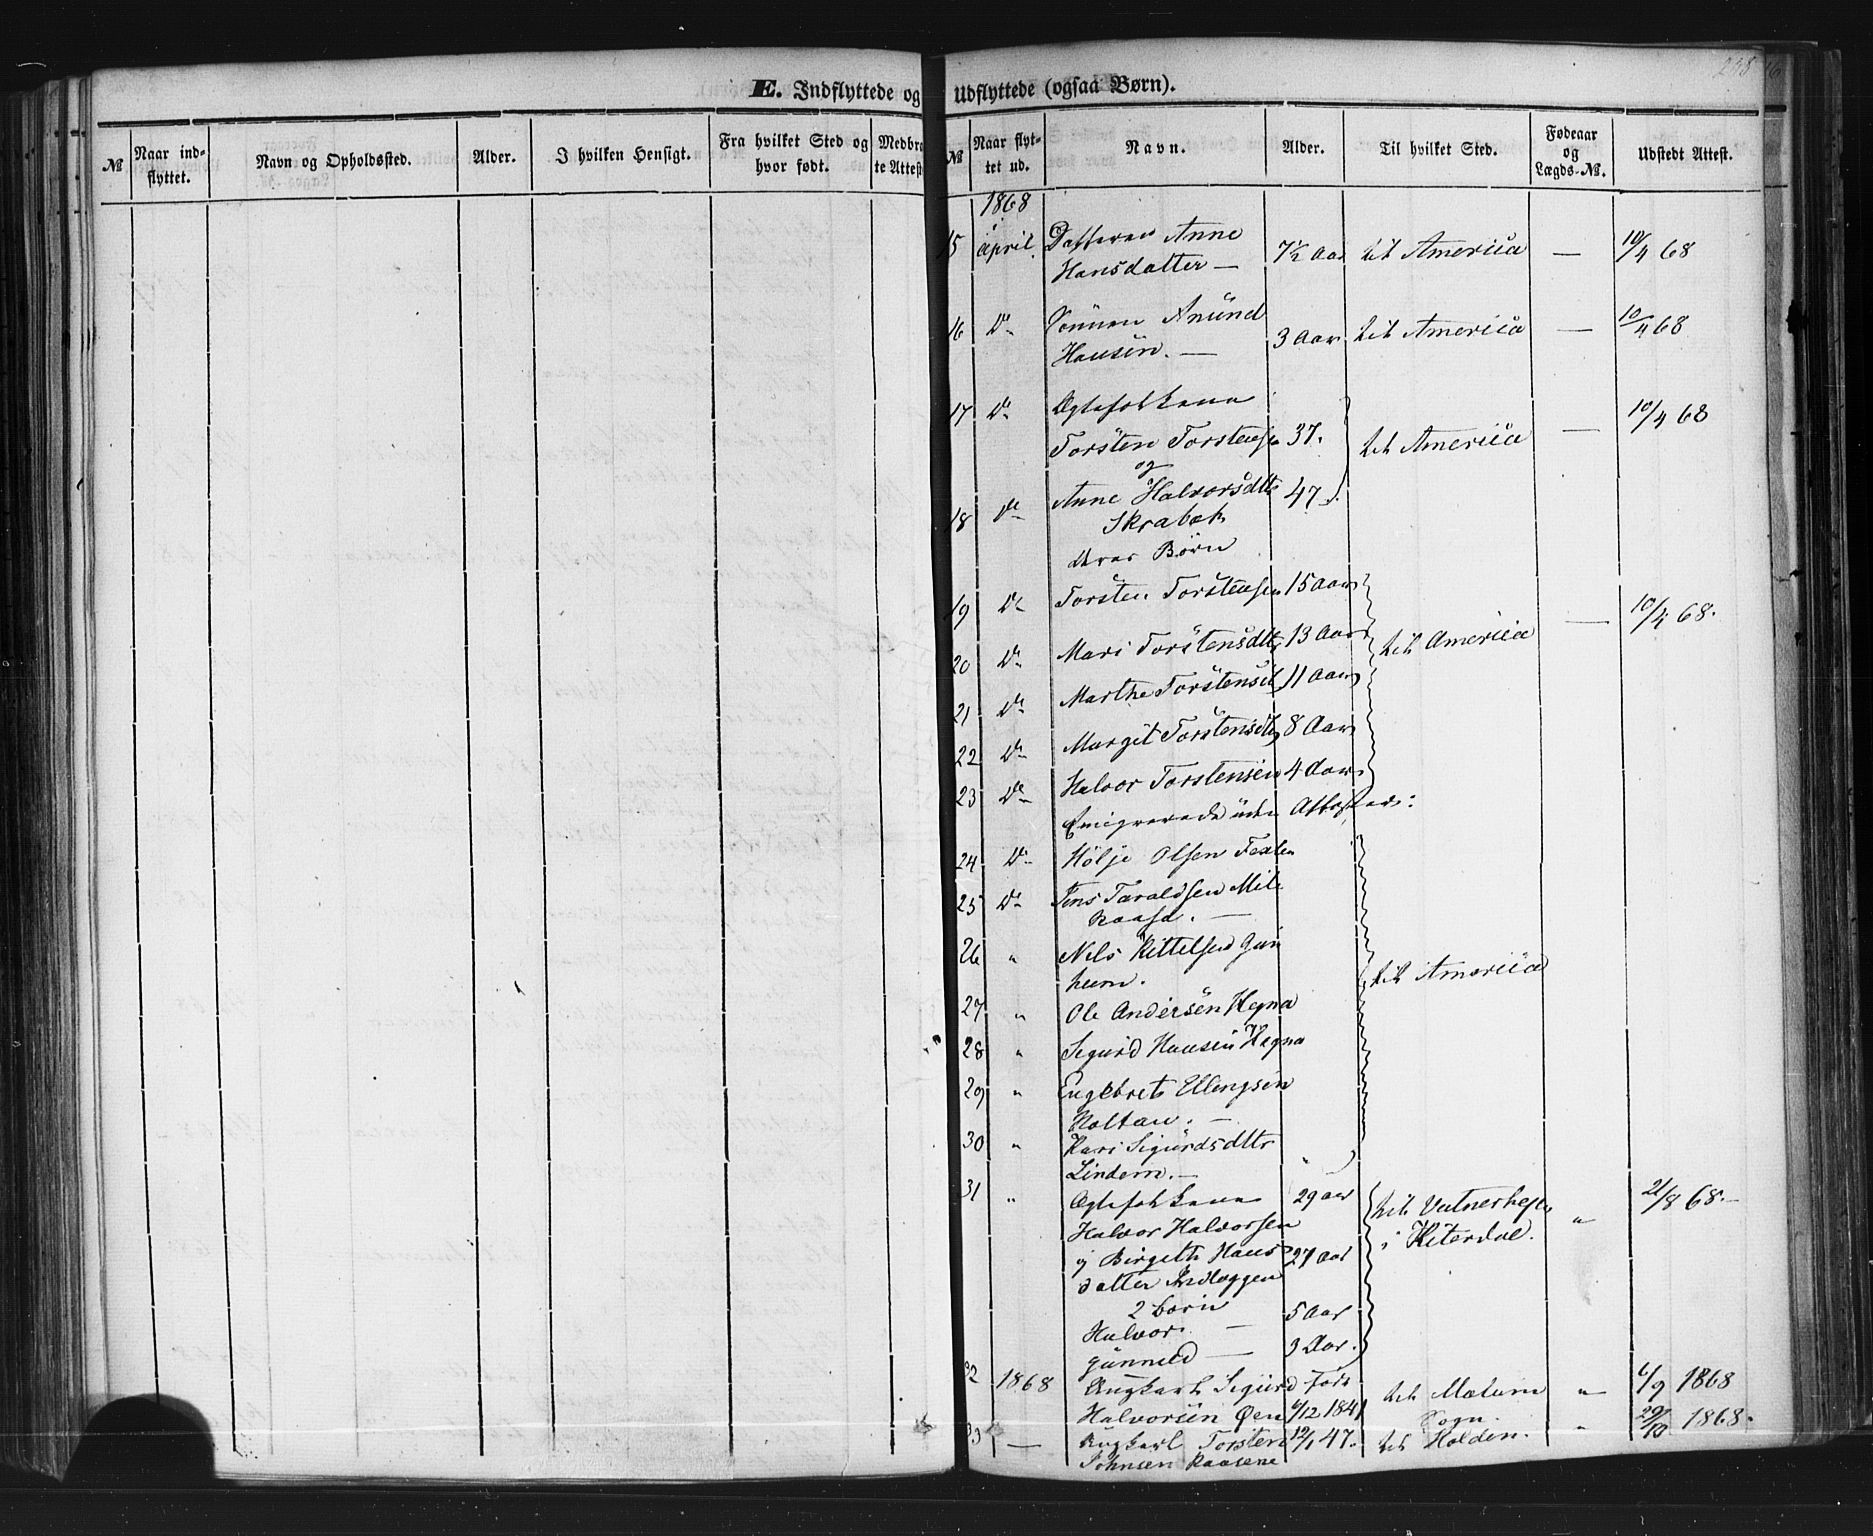 E. Indflyttede og Udflyttede (ogsaa Børn).
238
№ Naar ind- flyttet. Navn og Opholdssted. Alder. I hvilken Hensigt. Fra hvilket Sted og hvor født. Medbra- te Attest
№ Naar flyt- tet ud. Navn. Alder. Til hvilket Sted. Fødeaar og Lægds-№. Udstedt Attest.
1868
15 April Datteren Anne
Hansdatter — 7½ Aar til America — 10/4 68
16 Do Sönnen Anünd
Hansen. — 3 Aar til America — 10/4 68
17 Do Ægtefolkene
Torsten Torstensen 37. til America — 10/4 68
og
18 Do Anne Halvorsdtr 47
Skrabek
deres Börn
19 Do Torsten Torstensen 15 Aar — 10/4 68.
20 Do Mari Torstensdtr 13 Aar til America
21 Do Marthe Torstensd 11 Aar
22 Do Margit Torstensdtr 8 Aar
23 Do Halvor Torstensen 4 Aar
Emigrerede uden Attester:
24 Do Hölje Olsen
25 Do Jens Taraldsen
26 " Nels Kittelsen
heim. til America
27 " Ole Andersen Hegna
28 " Sigurd Hansen Hegna
29 " Engebret Ellingsen
Holtan. —
30 " Kari Sigurdsdttr "
Lindem. —
31 " Ægtefolkene 29 Aar til 21/8 68. —
Halvor Halvorsen i Hiterdal. "
og Birgith Hans 27 Aar
datter
2 börn 5 Aar
Halvor — 3 Aar.
Günneld —
32 1868 Ungkarl Sigurd Föd til Mælum " 6/9 1868
Halvorsen Øen 6/12 1841 Sogn.
33 — Ungkarl Torsten 12/1 47. til Holden. " 29/10 1868.
Johnsen Raasene